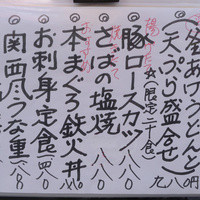 釜あげうどんと
(天ぷら盛合せ)
九八〇円
揚げたて
☆(限定二十食)
豚ロースカツ
八八〇
焼きたて
さばの塩焼
八八〇
本まぐろ鉄火丼
お刺身定食
関西風うな重